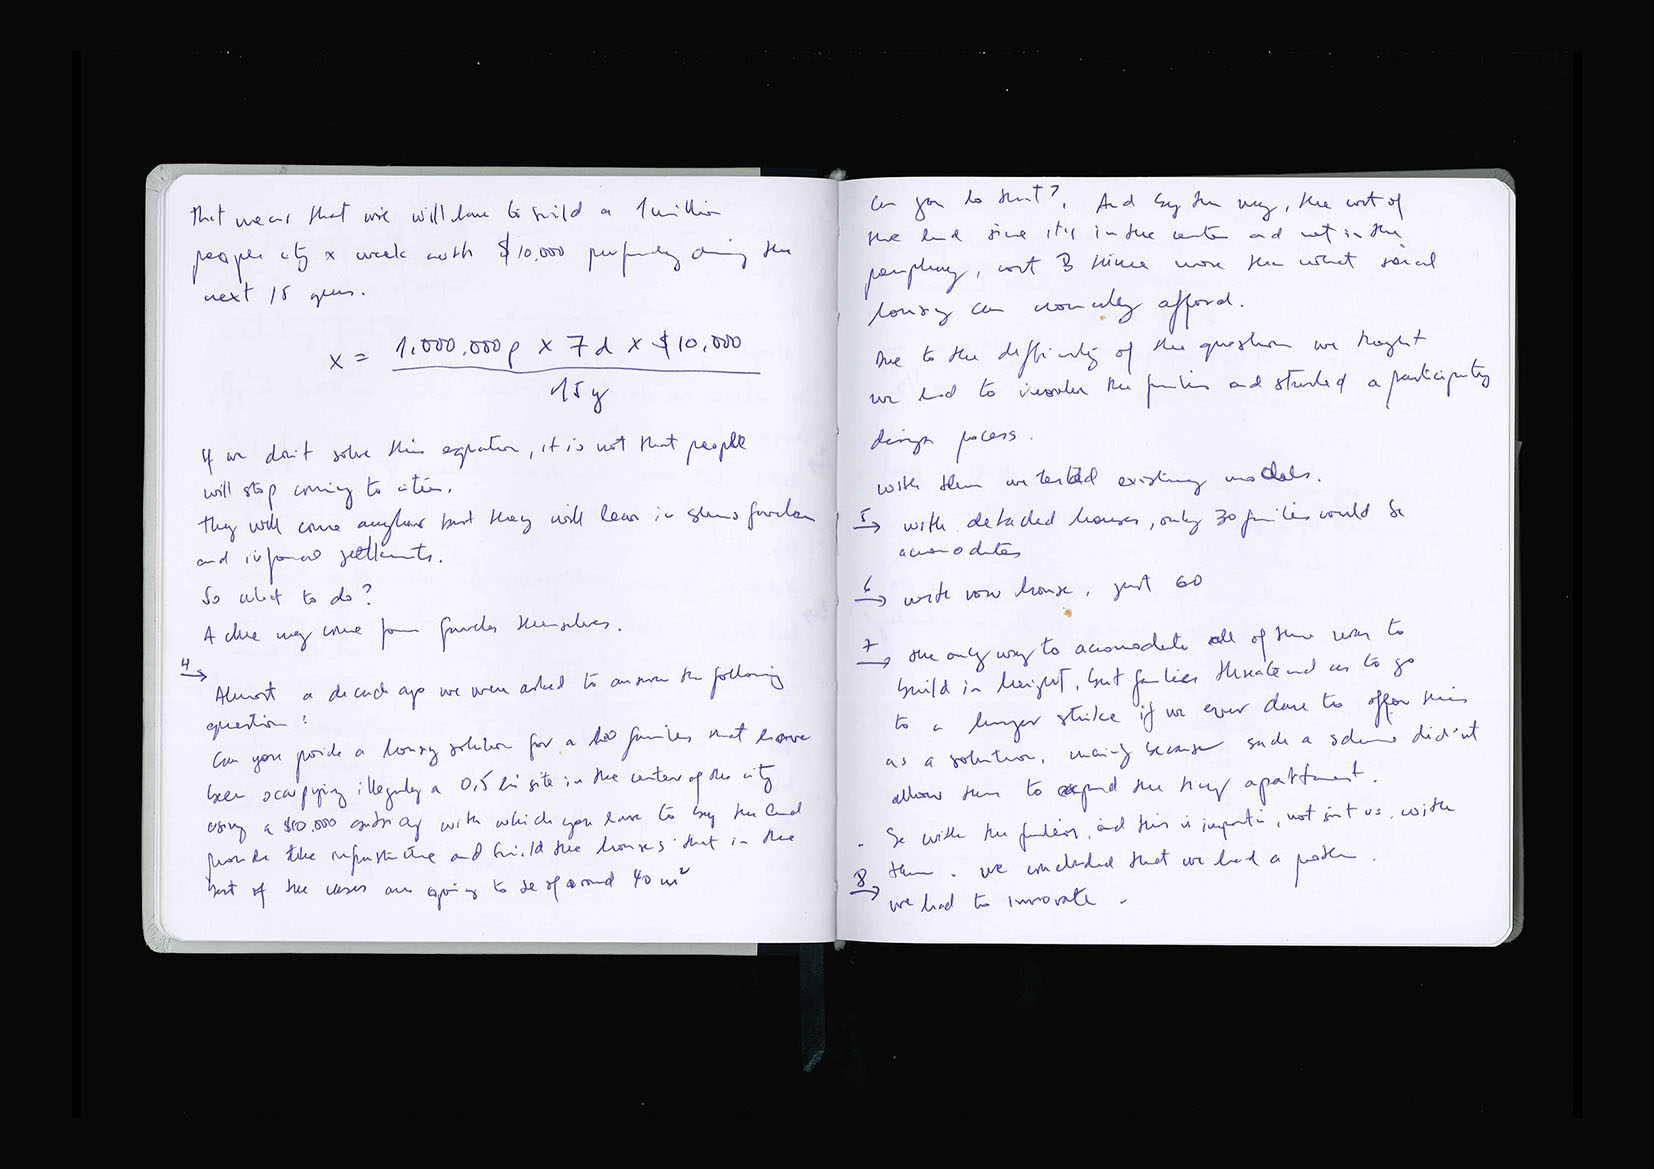 That means that we will have to build a 1 million
people city x week with $10,000 per family during the
next 15 years.
x = 1,000,000p x 7d x $10,000
15y
If we don't solve this equation, it is not that people
will stop coming to cities.
They will come anyhow but they will live in slums favelas
and informal settlements.
So what to do?
A clue may come from favelas themselves.
4
Almost a decade ago we were asked to answer the following
question:
Can you provide a housing solution for a 100 families that have
been occupying illegally a 0,5 ha site in the center of the city
using a $10.000 subsidy with which you have to buy the land
provide the infrastructure and build the houses that in the
best of the cases are going to be of around 40 m²
Can you do that?. And by the way, the cost of
the land since it's in the center and not in the
periphery, cost 3 times more than what social
housing can normally afford.
Due to the difficulty of the question we thought
we had to involve the families and started a participatory
design process.
with them we tested existing models.
5 with detached houses, only 30 families could be
acomodates
6 with row house, just 60
7 the only way to acomodate all of them was to
build in height, but families threatened us to go
to a hunger strike if we ever dare to offer this
as a solution, mainly because such a scheme didn't
allow them to expand the tiny apartment.
. So with the families, and this is important, not just us, with
them. we concluded that we had a problem.
8 we had to innovate.